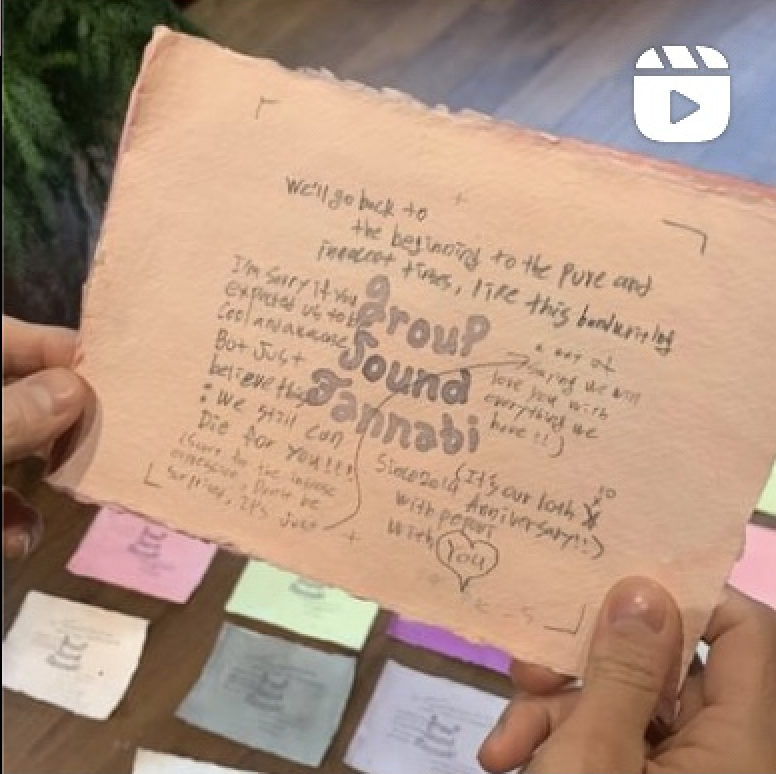 We'll go back to
the beginning to the pure and
innocent times, like this handwriting
I'm sorry if you
expected us to be
Cool and awesome
But Just
believe this
: We still can
Die for YOU!!!!
(Sorry for the intense
expression. Don't be
surprised, It's just
group
Sound
Jannabi
a way of
saying we will
love you with
everything we
have!!)
Since2014 (It's our 10th
10
Anniversary!!)
with pepori
with You